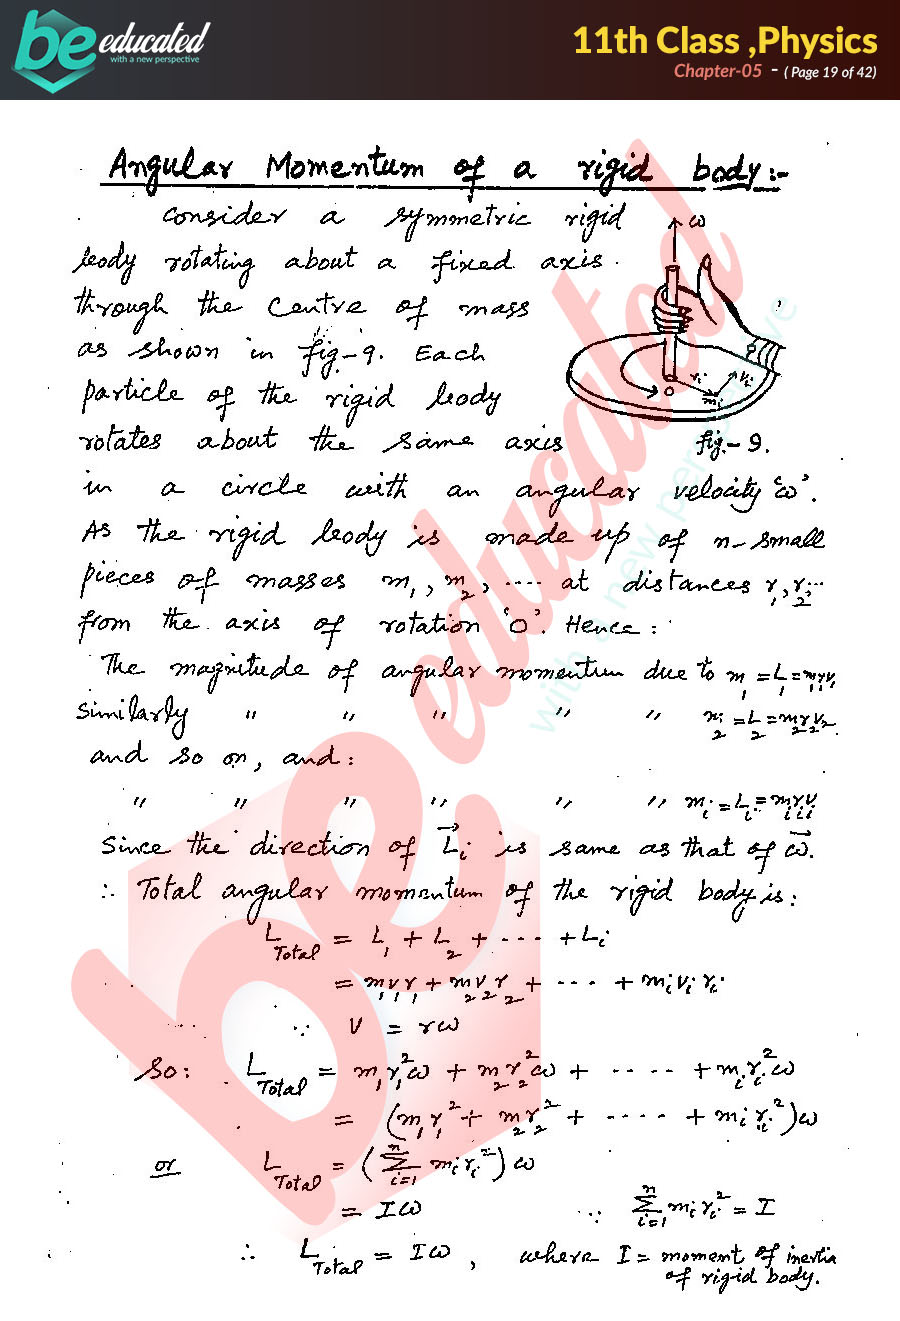 be educated
with a new perspective
11th Class ,Physics
Chapter-05 - ( Page 19 of 42)
Angular Momentum of a rigid body:-
Consider a symmetric rigid
body rotating about a fixed axis.
through the Centre of mass
as shown in fig-9. Each
particle of the rigid body
rotates about the same axis
ω
rᵢ
vᵢ
mᵢ
O
fig.-9.
in a circle with an angular velocity 'ω'.
As the rigid body is made up of n-small
pieces of masses m₁, m₂, ---- at distances r₁, r₂...
from the axis of rotation 'O'. Hence:
The magnitude of angular momentum due to m₁ = L₁ = m₁r₁v₁
Similarly " " " " " m₂ = L₂ = m₂r₂v₂
and so on, and:
" " " " " " mᵢ = Lᵢ = mᵢrᵢvᵢ
Since the direction of L⃗ᵢ is same as that of ω⃗.
∴ Total angular momentum of the rigid body is:
L_Total = L₁ + L₂ + --- + Lᵢ
= m₁v₁r₁ + m₂v₂r₂ + --- + mᵢvᵢrᵢ
∵ v = rω
So: L_Total = m₁r₁²ω + m₂r₂²ω + ---- + mᵢrᵢ²ω
= (m₁r₁² + m₂r₂² + ---- + mᵢrᵢ²)ω
or L_Total = (∑ⁿᵢ₌₁ mᵢrᵢ²) ω
= Iω ∵ ∑ⁿᵢ₌₁ mᵢrᵢ² = I
∴ L_Total = Iω , where I = moment of inertia
of rigid body.
be educated
with a new perspective